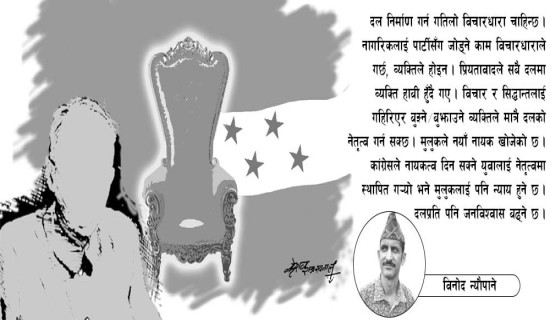 दल निर्माण गर्न गतिलो विचारधारा चाहिन्छ ।
नागरिकलाई पार्टीसँग जोड्ने काम विचारधाराले
गर्छ, व्यक्तिले होइन । प्रियतावादले सबै दलमा
व्यक्ति हावी हुँदै गए । विचार र सिद्धान्तलाई
गहिरिएर बुझ्ने/बुझाउने व्यक्तिले मात्रै दलको
नेतृत्व गर्न सक्छ । मुलुकले नयाँ नायक खोजेको छ ।
कांग्रेसले नायकत्व दिन सक्ने युवालाई नेतृत्वमा
स्थापित गर्‍यो भने मुलुकलाई पनि न्याय हुने छ ।
दलप्रति पनि जनविश्वास बढ्ने छ ।
विनोद न्यौपाने